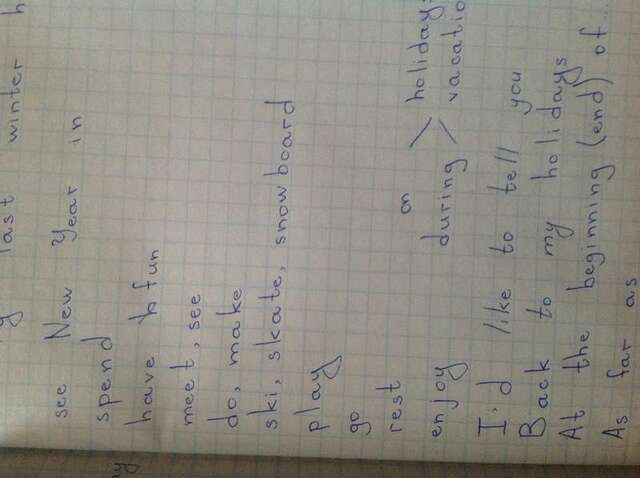 last winter h
see New Year in
spend
have fun
meet, see
do, make
ski, skate, snowboard
play
go
rest
on holidays
enjoy during vacatio
I'd like to tell you
Back to my holidays
At the beginning (end) of ...
As far as